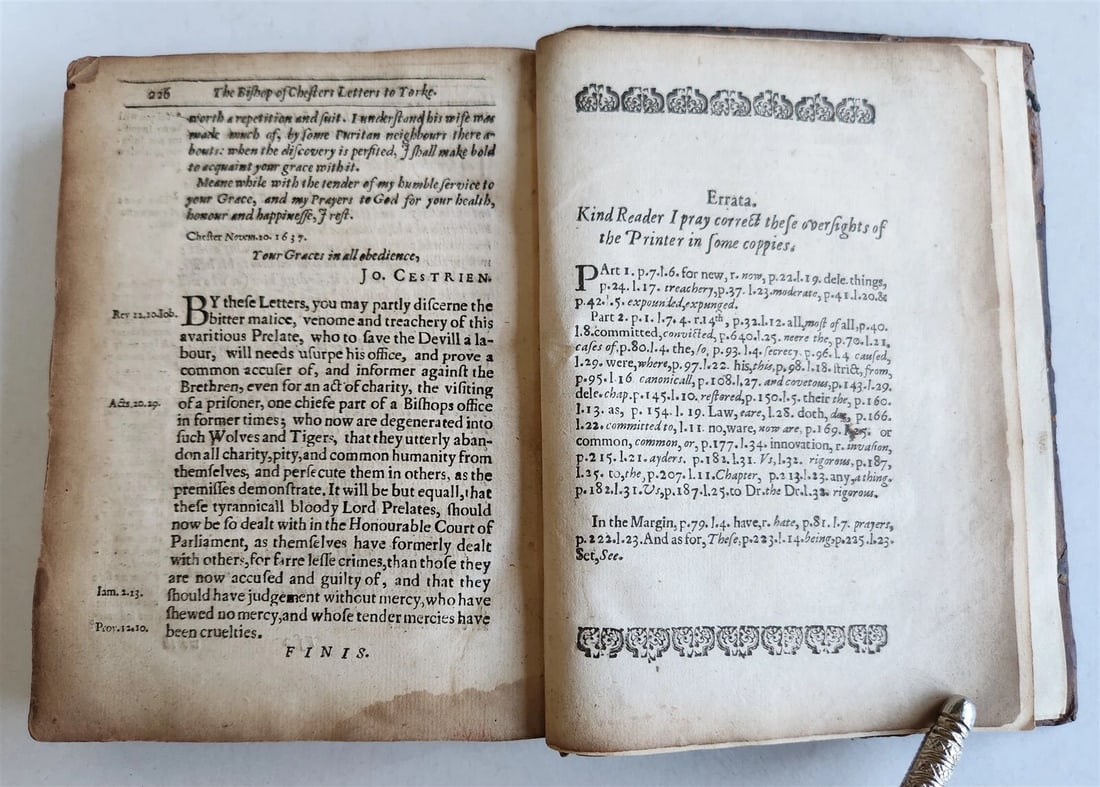 226 The Bishop of Chesters Letters to Yorke.
worth a repetition and suit. I understand his wife was
made much of, by some Puritan neighbours there a-
bouts: when the discovery is perfited, I shall make bold
to acquaint your grace with it.
Meane while with the tender of my humble service to
your Grace, and my Prayers to God for your health,
honour and happinesse, I rest.
Chester Novem. 20. 1637.
Your Graces in all obedience,
JO. CESTRIEN.
Rev 12.10. Iob.
BY these Letters, you may partly discerne the
bitter malice, venome and treachery of this
avaritious Prelate, who to save the Devill a la-
bour, will needs usurpe his office, and prove a
common accuser of, and informer against the
Brethren, even for an act of charity, the visiting
Acts.20.29.
of a prisoner, one chiefe part of a Bishops office
in former times; who now are degenerated into
such Wolves and Tigers, that they utterly aban-
don all charity, pity, and common humanity from
themselves, and persecute them in others, as the
premisses demonstrate. It will be but equall, that
these tyrannicall bloody Lord Prelates, should
now be so dealt with in the Honourable Court of
Parliament, as themselves have formerly dealt
with others, for farre lesse crimes, than those they
are now accused and guilty of, and that they
Iam. 2.13.
should have judgement without mercy, who have
shewed no mercy, and whose tender mercies have
Prov. 12.10.
been cruelties.
FINIS.
Errata.
Kind Reader I pray correct these oversights of
the Printer in some coppies.
PArt 1. p.7.l.6. for new, r. now, p.22.l.19. dele. things,
p.24.l.17. treachery, p.37.l.23. moderate, p.41.l.20.&
p.42.l.5. expounded, expunged.
Part 2. p.1.l.7.4. r.14th, p.32.l.12. all, most of all, p.40.
l.8. committed, convicted, p.640.l.25. neere the, p.70.l.21.
cases of, p.80.l.4. the, so, p.93.l.4. secrecy. p.96.l.4 caused,
l.29. were, where, p.97.l.22. his, this, p.98.l.18. strict, from,
p.95.l.16 canonicall, p.108.l.27. and covetous, p.143.l.29.
dele. chap. p.145.l.10. restored, p.150.l.5. their the, p.160.
l.13. as, p.154.l.19. Law, eare, l.28. doth, p.166.
l.22. committed to, l.11 no, ware, now are, p.169. or
common, common, or, p.177.l.34. innovation, r. invasion,
p.215.l.21. ayders. p.182.l.31. Vs, l.32. rigorous, p.187,
l.25. to, the, p.207.l.11. Chapter, p.213.l.23. any, a thing.
p.182.l.31. Us, p.187.l.25. to Dr. the Dr. l.32. rigorous.
In the Margin, p.79.l.4. have, r. hate, p.81.l.7. prayers,
p.222.l.23. And as for, These, p.223.l.14. being, p.225.l.23.
Set, See.